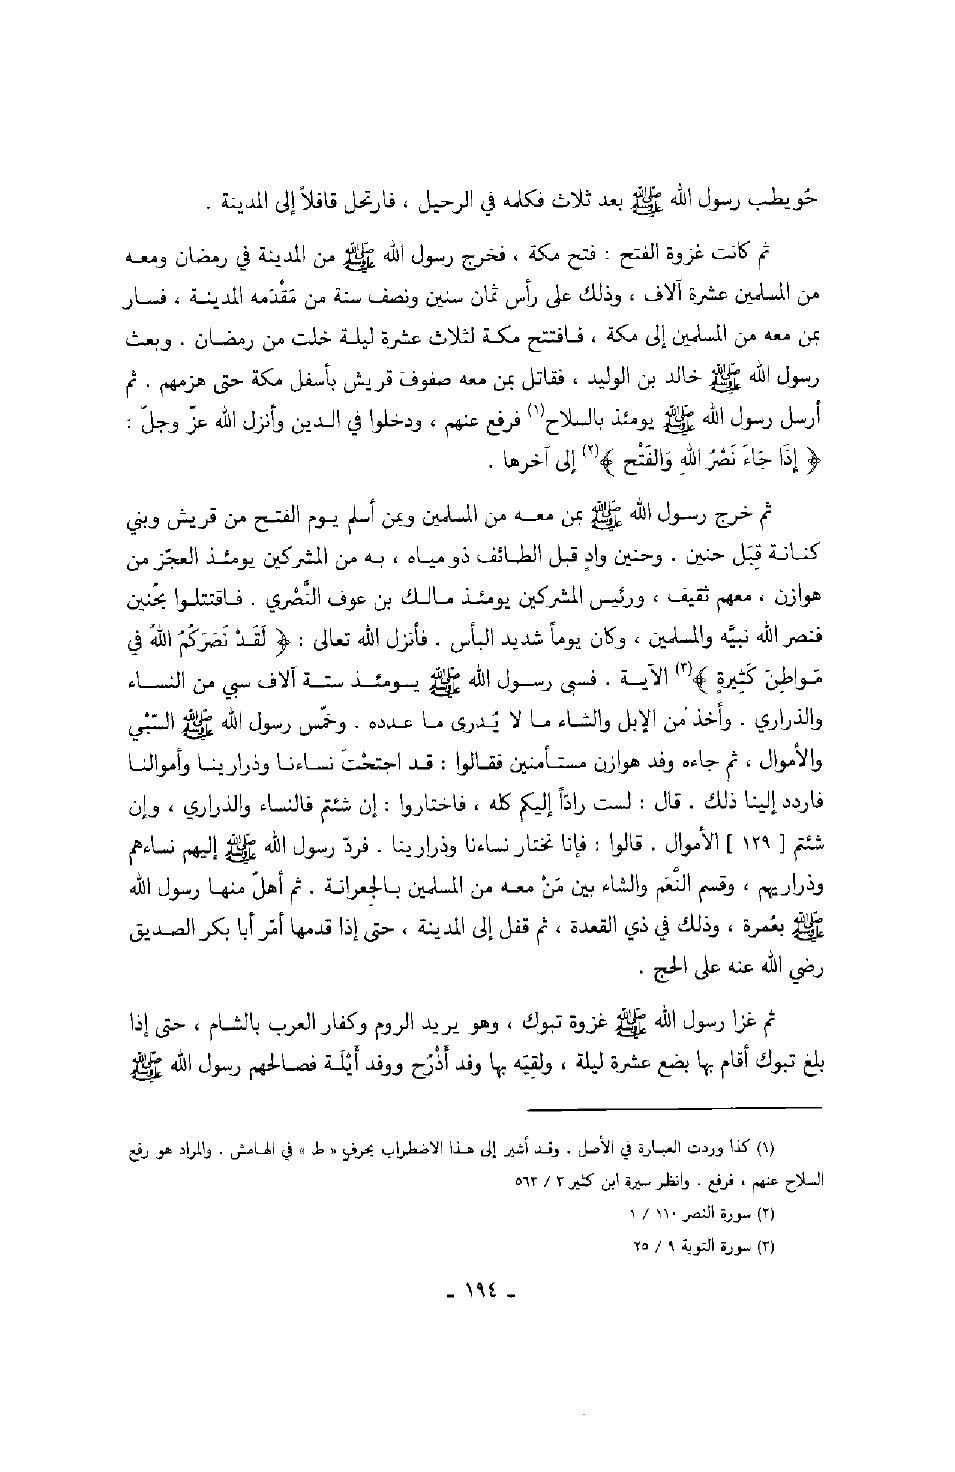 حُويطب رسول الله ﷺ بعد ثلاث فكلمه في الرحيل ، فارتحل قافلاً إلى المدينة .
ثم كانت غزوة الفتح : فتح مكة ، فخرج رسول الله ﷺ من المدينة في رمضان ومعه
من المسلمين عشرة آلاف ، وذلك على رأس ثمان سنين ونصف سنة من مَقْدَمه المدينة ، فسار
بمن معه من المسلمين إلى مكة ، فافتتح مكة لثلاث عشرة ليلة خلت من رمضان . وبعث
رسول الله ﷺ خالد بن الوليد ، فقاتل بمن معه صفوفَ قريش بأسفل مكة حتى هزمهم . ثم
أرسل رسول الله ﷺ يومئذ بالسلاح(١) فرفع عنهم ، ودخلوا في الدين وأنزل الله عزّ وجلّ :
﴿ إِذَا جَاءَ نَصْرُ اللهِ وَالفَتْح ﴾(٢) إلى آخرها .
ثم خرج رسول الله ﷺ بمن معه من المسلمين وبمن أسلم يوم الفتح من قريش وبني
كنانة قِبَل حنين . وحنين وادٍ قبل الطائف ذو مياه ، به من المشركين يومئذ العجُز من
هوازن ، معهم ثقيف ، ورئيس المشركين يومئذ مالك بن عوف النَّصْري . فاقتتلوا بحُنين
فنصر الله نبيَّه والمسلمين ، وكان يوماً شديد البأس . فأنزل الله تعالى : ﴿ لَقَدْ نَصَرَكُمُ اللهُ في
مَواطِنَ كَثِيرةٍ ﴾(٣) الآية . فسبى رسول الله ﷺ يومئذ ستة آلاف سبي من النساء
والذراري . وأخذ من الإبل والشاء ما لا يُدرى ما عدده . وخمّس رسول الله ﷺ السَّبْي
والأموال ، ثم جاءه وفد هوازن مستأمنين فقالوا : قد احتحْتَ نساءنا وذرارينا وأموالنا
فاردد إلينا ذلك . قال : لست رادّاً إليكم كله ، فاختاروا : إن شئتم فالنساء والذراري ، وإن
شئتم [ ١٢٩ ] الأموال . قالوا : فإنا نختار نساءنا وذرارينا . فردّ رسول الله ﷺ إليهم نساءهم
وذراريهم ، وقسم النَّعَم والشاء بين مَنْ معه من المسلمين بالجعرانة . ثم أهلّ منها رسول الله
ﷺ بعُمرة ، وذلك في ذي القعدة ، ثم قفل إلى المدينة ، حتى إذا قدمها أمّر أبا بكر الصديق
رضي الله عنه على الحج .
ثم غزا رسول الله ﷺ غزوة تبوك ، وهو يريد الروم وكفار العرب بالشام ، حتى إذا
بلغ تبوك أقام بها بضع عشرة ليلة ، ولقيَه بها وفد أَذْرُح ووفد أَيْلَة فصالحهم رسول الله ﷺ
(١) كذا وردت العبارة في الأصل . وقد أشير إلى هذا الاضطراب بحرف « ط » في الهامش . والمراد هو رفع
السلاح عنهم ، فرفع . وانظر سيرة ابن كثير ٣ / ٥٦٢
(٢) سورة النصر ١١٠ / ١
(٣) سورة التوبة ٩ / ٢٥
- ١٩٤ -